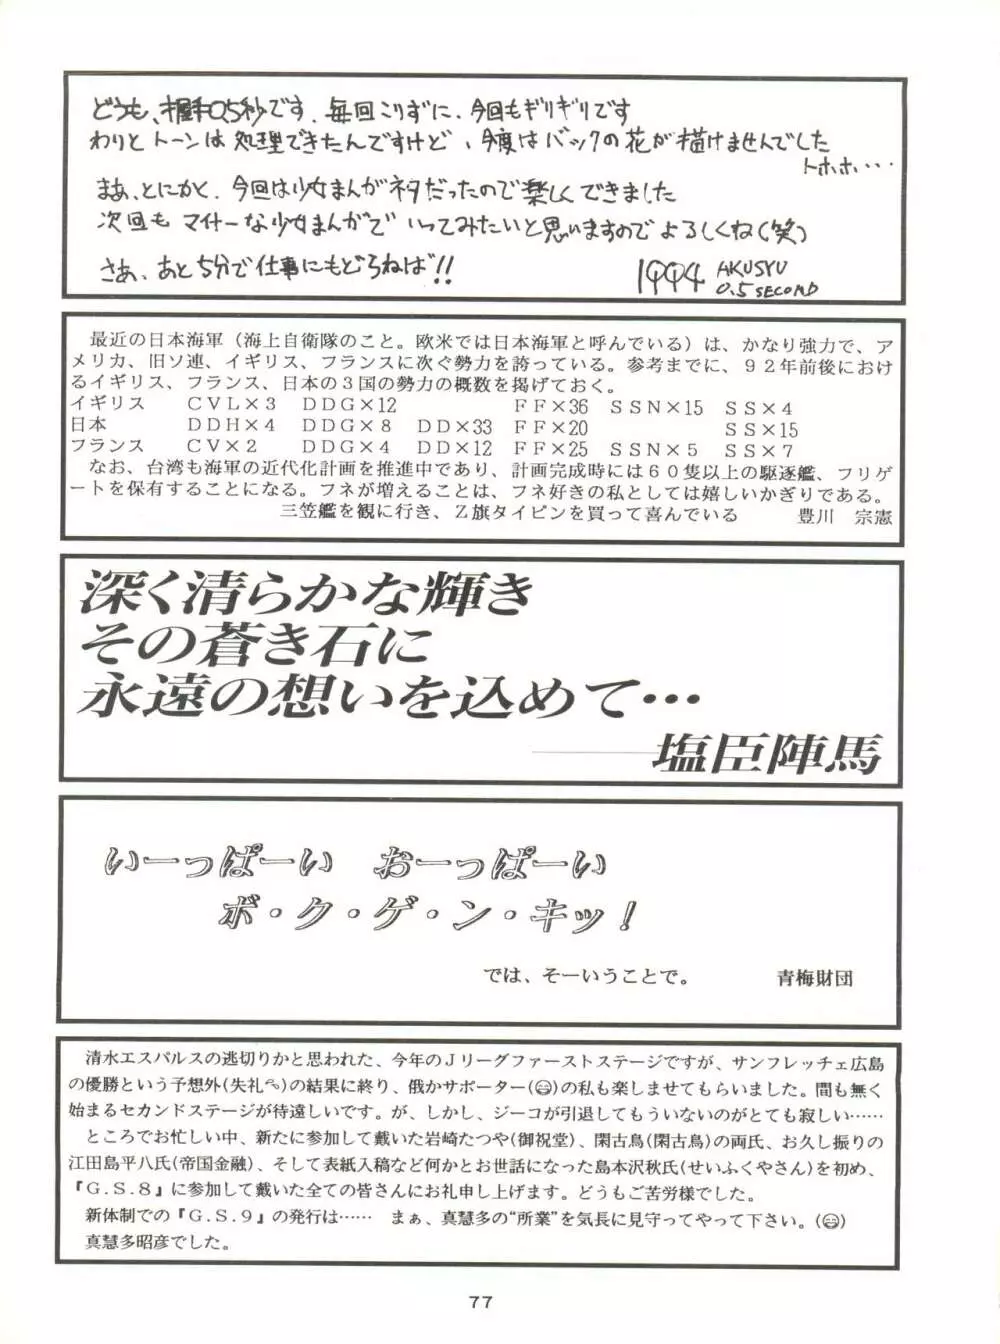 どうも、握手0.5秒です。毎回こりずに、今回もギリギリです
わりとトーンは処理できたんですけど、今度はバックの花が描けませんでした
トホホ・・・
まあ、とにかく、今回は少女まんがネタだったので楽しくできました
次回もマイナーな少女まんがで いってみたいと思いますのでよろしくね(笑)
さあ、あと5分で仕事にもどらねば!!
1994 AKUSYU
0.5 SECOND
最近の日本海軍(海上自衛隊のこと。欧米では日本海軍と呼んでいる)は、かなり強力で、ア
メリカ、旧ソ連、イギリス、フランスに次ぐ勢力を誇っている。参考までに、92年前後におけ
るイギリス、フランス、日本の3国の勢力の概数を掲げておく。
イギリス CVL×3 DDG×12 FF×36 SSN×15 SS×4
日本 DDH×4 DDG×8 DD×33 FF×20 SS×15
フランス CV×2 DDG×4 DD×12 FF×25 SSN×5 SS×7
なお、台湾も海軍の近代化計画を推進中であり、計画完成時には60隻以上の駆逐艦、フリゲ
ートを保有することになる。フネが増えることは、フネ好きの私としては嬉しいかぎりである。
三笠艦を観に行き、Z旗タイピンを買って喜んでいる 豊川 宗憲
深く清らかな輝き
その蒼き石に
永遠の想いを込めて…
――塩臣陣馬
いーっぱーい おーっぱーい
ボ・ク・ゲ・ン・キッ!
では、そーいうことで。 青梅財団
清水エスパルスの逃切りかと思われた、今年のJリーグファーストステージですが、サンフレッチェ広島
の優勝という予想外(失礼)の結果に終り、俄かサポーター(笑)の私も楽しませてもらいました。間も無く
始まるセカンドステージが待遠しいです。が、しかし、ジーコが引退してもういないのがとても寂しい……
ところでお忙しい中、新たに参加して戴いた岩崎たつや(御祝堂)、閑古鳥(閑古鳥)の両氏、お久し振りの
江田島平八氏(帝国金融)、そして表紙入稿など何かとお世話になった島本沢秋氏(せいふくやさん)を初め、
『G.S.8』に参加して戴いた全ての皆さんにお礼申し上げます。どうもご苦労様でした。
新体制での『G.S.9』の発行は…… まぁ、真慧多の“所業”を気長に見守ってやって下さい。
真慧多昭彦でした。
77